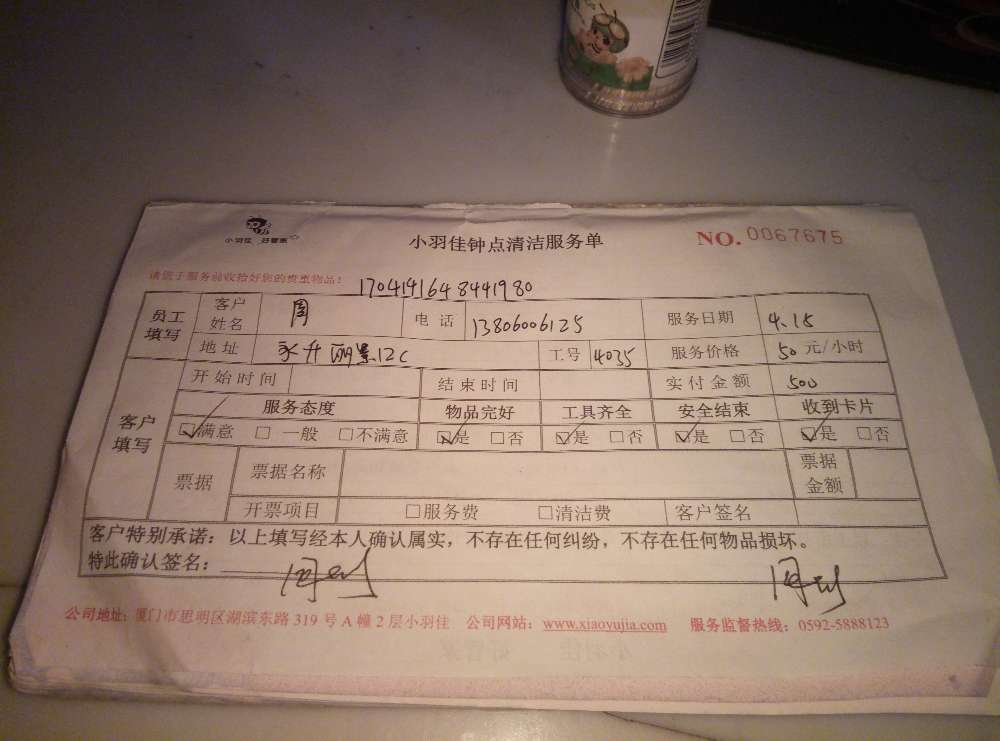 小羽佳 好管家
小羽佳钟点清洁服务单
NO. 0067675
请您于服务前收拾好您的贵重物品！
1704141648441980
员工填写 客户姓名 周 电话 13806006125 服务日期 4.15
地址 永升丽景12C 工号 4035 服务价格 50 元/小时
客户填写 开始时间 结束时间 实付金额 500
服务态度 物品完好 工具齐全 安全结束 收到卡片
☑满意 □一般 □不满意 ☑是 □否 ☑是 □否 ☑是 □否 ☑是 □否
票据 票据名称 票据金额
开票项目 □服务费 □清洁费 客户签名
客户特别承诺：以上填写经本人确认属实，不存在任何纠纷，不存在任何物品损坏。
特此确认签名：
公司地址：厦门市思明区湖滨东路 319 号 A 幢 2 层小羽佳 公司网站：www.xiaoyujia.com 服务监督热线：0592-5888123